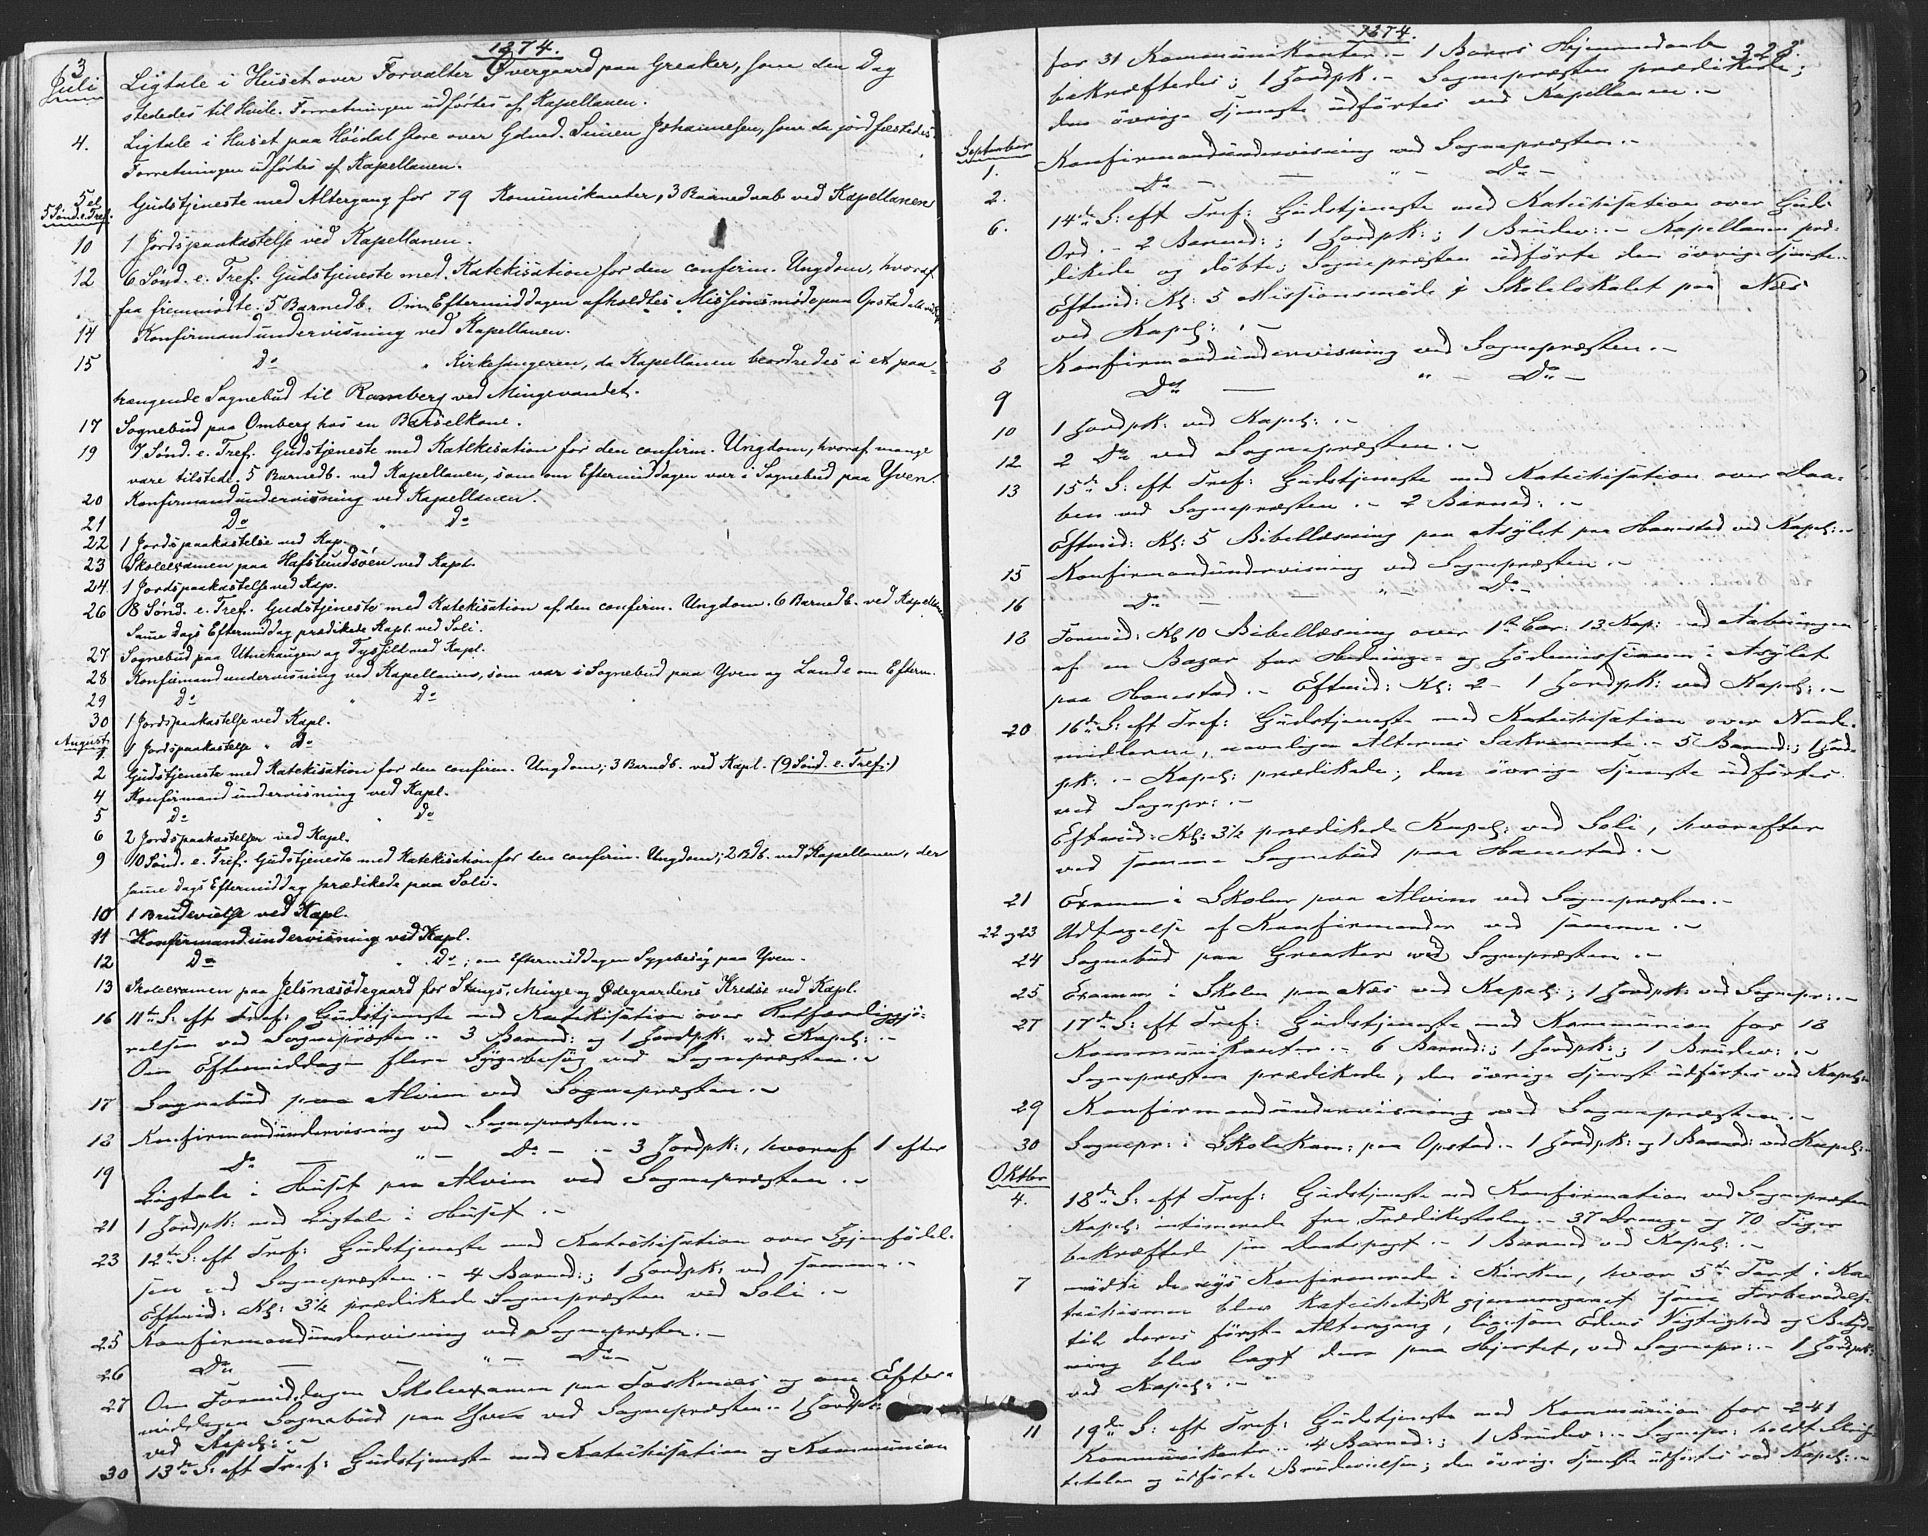 1874.
3 Juli Ligtale i Huset over Forvalter Øvergaard paa Greaker, som den Dag
stededes til Hvile. Forretningen udførtes af Kapellanen.
4. Ligtale i Huset paa Høidal store over Gdmd. Simen Johannesen, som da jordfæstedes.
Forretningen udførtes af Kapellanen.
5 el. 5 Sønd. e. Tref. Gudstjeneste med Altergang for 79 Komunikanter, 3 Barnedaab ved Kapellanen
10 1 Jordspaakastelse ved Kapellanen.
12 6 Sønd. e. Tref. Gudstjeneste med Katekisation for den confirm. Ungdom, hvoraf
faa fremmødte. 5 Barnedb. Om Eftermiddagen afholdtes Missionsmøde paa Opstad
14 Konfirmandundervisning ved Kapellanen.
15 Do " Kirkesangeren, da Kapellanen beordredes i et paa-
trængende Sognebud til Ramberg ved Mingevandet.
17 Sognebud paa Omberg hos en Barselkone.
19 7 Sønd. e. Tref. Gudstjeneste med Katekisation for den confirm. Ungdom, hvoraf mange
vare tilstede. 5 Barnedb. ved Kapellanen, som om Eftermiddagen var i Sognebud paa Yven.
20 Konfirmandundervisning ved Kapellanen.
21 Do " Do
22 1 Jordspaakastelse ved Kap.
23 Skoleexamen paa Hafslundsøen ved Kapl.
24 1 Jordspaakastelse ved Kap.
26 8 Sønd. e. Tref. Gudstjeneste med Katekisation af den confirm. Ungdom. 6 Barnedb. ved Kapellanen
Same Dags Eftermiddag prædikede Kapl. ved Soli.
27 Sognebud paa Utnehaugen og Tysfild ved Kapl.
28 Konfirmandundervisning ved Kapellanen, som var i Sognebud paa Yven og Lande om Efterm.
29 Do " Do
30 1 Jordspaakastelse ved Kapl.
August 1 1 Jordspaakastelse " Do
2 Gudstjeneste med Katekisation for den confirm. Ungdom; 3 Barndb. ved Kapl. (9 Sønd. e. Tref.)
4 Konfirmandundervisning ved Kapl.
5 Do " Do
6 2 Jordspaakastelser ved Kapl.
9 10 Sønd. e. Tref. Gudstjeneste med Katekisation for den confirm. Ungdom; 2 Bdb. ved Kapellanen, der
same Dags Eftermiddag prædikede paa Soli.
10 1 Brudevielse ved Kapl.
11 Konfirmandundervisning ved Kapl.
12 Do " Do; om Eftermiddagen Sygebesøg paa Yven.
13 Skoleexamen paa Jelsnæsødegaard for Stangs, Minge og Ødegaardens Kredse ved Kapl.
16 11te S: eft Tref: Gudstjeneste med Katekisation over Retfærdiggjø-
relsen ved Sognepræsten .- 3 Barned: og 1 Jordpk: ved Kapel: .-
Om Eftermiddagen flere Sygebesøg ved Sognepræsten .-
17 Sognebud paa Alvim ved Sognepræsten .-
18 Konfirmandundervisning ved Sognepræsten .-
19 Do — " — Do — .- 3 Jordpk:, hvoraf 1 efter
Ligtale i Huset paa Alvim ved Sognepræsten .-
21 1 Jordpk: med Ligtale i Huset .-
23 12te S: eft Tref: Gudstjeneste med Katechisation over Gjenfødel-
sen ved Sognepræsten .- 4 Barned:; 1 Jordpk: ved samme .-
Eftmid: Kl: 3½ prædikede Sognepræsten ved Soli .-
25 Konfirmandundervisning ved Sognepræsten .-
26 Do — — " — Do —
27 Om Formiddagen Skoleexamen paa Torsknæs og om Efter-
middagen Sognebud paa Yven ved Sognepræsten .- 1 Jordpk:
ved Kapel: .-
30 13de S: eft Tref: Gudstjeneste med Katechisation og Kommunion
1874. 323.
for 31 Kommunikanter .- 1 Barns Hjemmedaab
bekræftedes; 1 Jordpk .- Sognepræsten prædikede;
den øvrige Tjeneste udførtes ved Kapellanen .-
September
1. Konfirmandundervisning ved Sognepræsten .-
2. Do — — " — Do —
6. 14de S: eft Tref: Gudstjeneste med Katechisation over Guds
Ord .- 2 Barned:; 1 Jordpk:; 1 Brudev: .- Kapellanen præ-
dikede og døbte; Sognepræsten udførte den øvrige Tjeneste.
Eftmid: Kl: 5 Missionsmøde i Skolelokalet paa Næs
ved Kapel: .-
8 Konfirmandundervisning ved Sognepræsten .-
9 Do — " — Do —
10 1 Jordpk: ved Kapel: .-
12 2 Do ved Sognepræsten .-
13 15de S: eft Tref: Gudstjeneste med Katechisation over Daa-
ben ved Sognepræsten .- 2 Barned: .-
Eftmid: Kl: 5 Bibellæsning paa Asylet paa Hannestad ved Kapel: .-
15 Konfirmandundervisning ved Sognepræsten .-
16 Do — — " — Do —
18 Formid: Kl 10 Bibellæsning over 1ste Cor: 13 Kap: ved Aabningen
af en Bazar for Hedninge- og Jødemissionen i Asylet
paa Hannestad .- Eftmid: Kl: 2 - 1 Jordpk: ved Kapel: .-
20 16de S: eft Tref: Gudstjeneste med Katechisation over Naade-
midlerne, navnligen Alterens Sakramente .- 5 Barned:; 1 Jord-
pk: .- Kapel: prædikede; den øvrige Tjeneste udførtes
ved Sognepr: .-
Eftmid: Kl: 3½ prædikede Kapel: ved Soli, hvorefter
ved samme Sognebud paa Hannestad .-
21 Examen i Skolen paa Alvim ved Sognepræsten .-
22 og 23 Udtagelse af Konfirmander ved samme .-
24 Sognebud paa Greaker ved Sognepræsten .-
25 Examen i Skolen paa Næs ved Kapel:; 1 Jordpk: ved Sognepr: .-
27 17de S: eft Tref: Gudstjeneste med Kommunion for 18
Kommunikanter .- 6 Barned:; 1 Jordpk:; 1 Brudev: .-
Sognepræsten prædikede, den øvrige Tjenest udførtes ved Kapel:
29 Konfirmandundervisning ved Sognepræsten .-
30 Sognepr: i Skolekom: paa Opstad .- 1 Jordpk: og 1 Barned: ved Kapel: .-
Oktbr
4. 18de S: eft Tref: Gudstjeneste med Konfirmation ved Sognepræsten
Kapel: intimerede fra Prædikestolen .- 37 Drenge og 70 Piger
bekræftede sin Daabspagt .- 1 Barned ved Kapel: .-
7 mødte de nys Konfirmerede i Kirken, hvor 5te Part i Ka-
techismen blev katechetisk gjennemgaaet som Forberedelse
til deres første Altergang, ligesom Edens Vigtighed og Betyd-
ning blev lagt dem paa Hjertet, ved Sognepr: .- 1 Jordpk:
ved Kapel: .-
11 19de S: eft Tref: Gudstjeneste med Kommunion for 241
Kommunikanter .- 4 Barned:; 1 Brudev: .- Sognepr: holdt Skrif-
tetalen og udførte Brudevielsen; den øvrige Tjeneste udførtes ved Kapel: .-